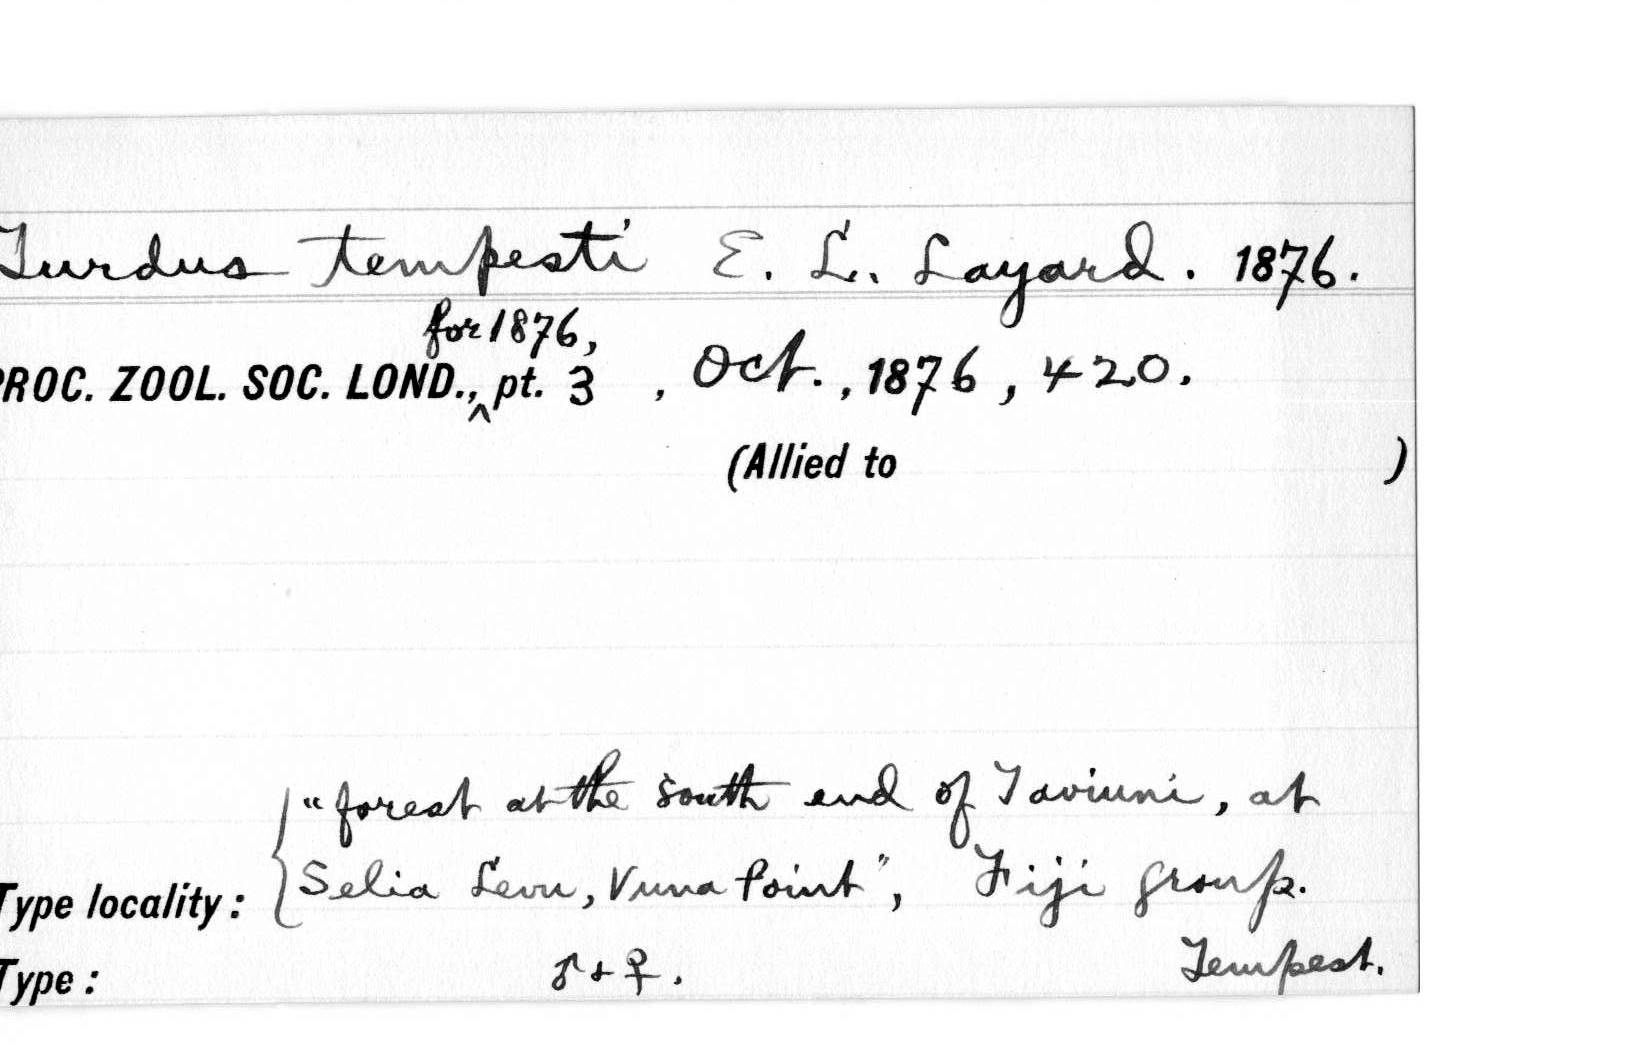 Turdus tempesti E. L. Layard. 1876.
for 1876,
PROC. ZOOL. SOC. LOND., ^ pt. 3 , Oct. , 1876 , 420.
(Allied to )
"forest at the south end of Taviuni, at
Selia Levu, Vuna Point", Fiji group.
Type locality :
Type : ♂ + ♀. Tempest.